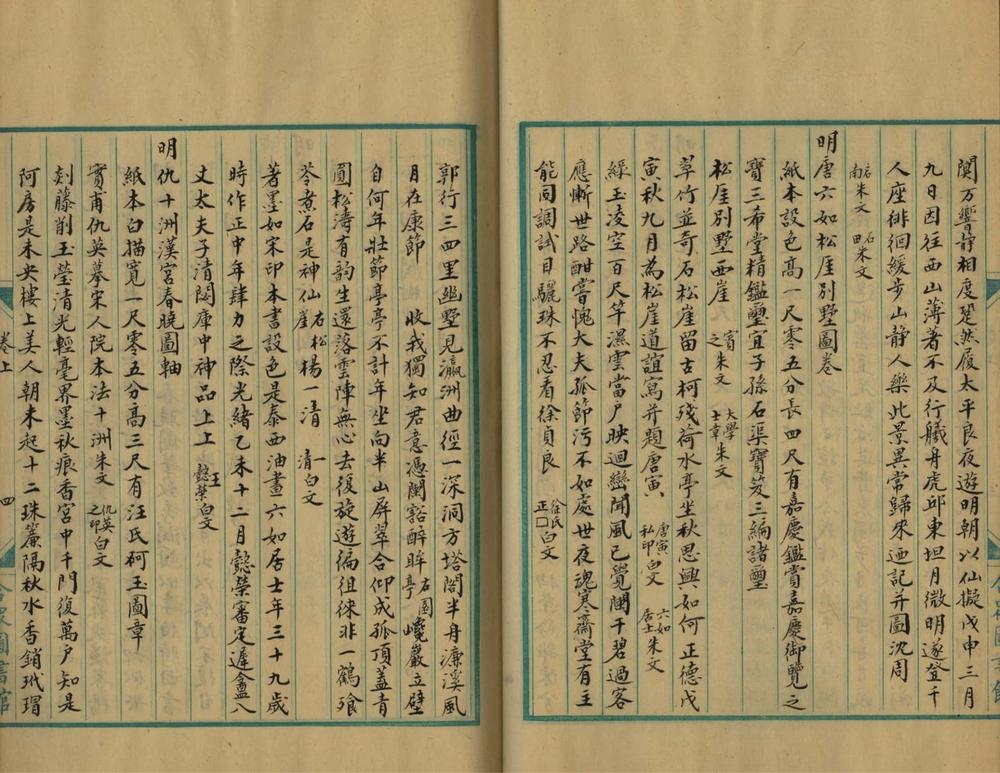 闃万響靜相度跫然履太平良夜遊明朝以仙擬戊申三月
九日因往西山薄著不及行艤舟虎邱東坦月微明遂登千
人座徘徊緩步山靜人樂此景異常歸來迺記并圖沈周
啟南朱文 石田朱文
明唐六如松厓別墅圖卷
紙本設色高一尺零五分長四尺有嘉慶鑑賞嘉慶御覽之
寶三希堂精鑑璽宜子孫石渠寶笈三編諸璽
松厓別墅西崖 賓之朱文 大學士章朱文
翠竹並奇石松崖留古柯殘荷水亭坐秋思興如何正德戊
寅秋九月為松崖道誼寫并題唐寅 唐寅私印白文 六如居士朱文
綠玉凌空百尺竿濕雲當户映迴巒聞風已覺闌干碧過客
應慚世路酣嘗愧大夫孤節污不如處世夜魂寒齋堂有主
能同調試目驪珠不忍看徐貞良 徐氏正□白文
郭行三四里幽墅見瀛洲曲徑一深洞方塔閣半舟濂溪風
月在康節 收我獨知君意憑闌豁醉眸 右園亭 巉巖立壁
自何年壯節亭亭不計年坐向半山屏翠合仰成孤頂蓋青
圓松濤有韵生還落雲陣無心去復旋遊徧徂徠非一鶴飱
苓煮石是神仙 右松崖 楊一清 一清白文
著墨如宋印本書設色是泰西油畫六如居士年三十九歲
時作正中年肆力之際光緒乙未十二月懿榮審定遲盦八
丈太夫子清閟庫中神品上上 王懿榮白文
明仇十洲漢宮春曉圖軸
紙本白描寬一尺零五分高三尺有汪氏砢玉圖章
實甫仇英摹宋人院本法十洲朱文 仇英之印白文
剡藤削玉瑩清光輕毫界墨秋痕香宮中千門復萬户知是
阿房是未央樓上美人朝未起十二珠簾隔秋水香銷玳瑁
卷上
四